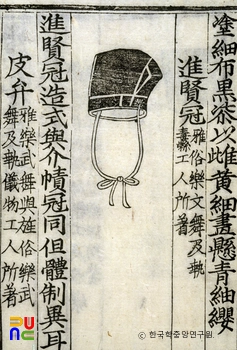 塗細布黑柒以雌黃細畫懸青紬纓
進賢冠 雅俗樂文舞及執
纛工人所著
進賢冠造式與介幘冠同但體制異耳
皮弁 雅樂武舞與旌俗樂武
舞及執儀物工人所著
© 한국학중앙연구원